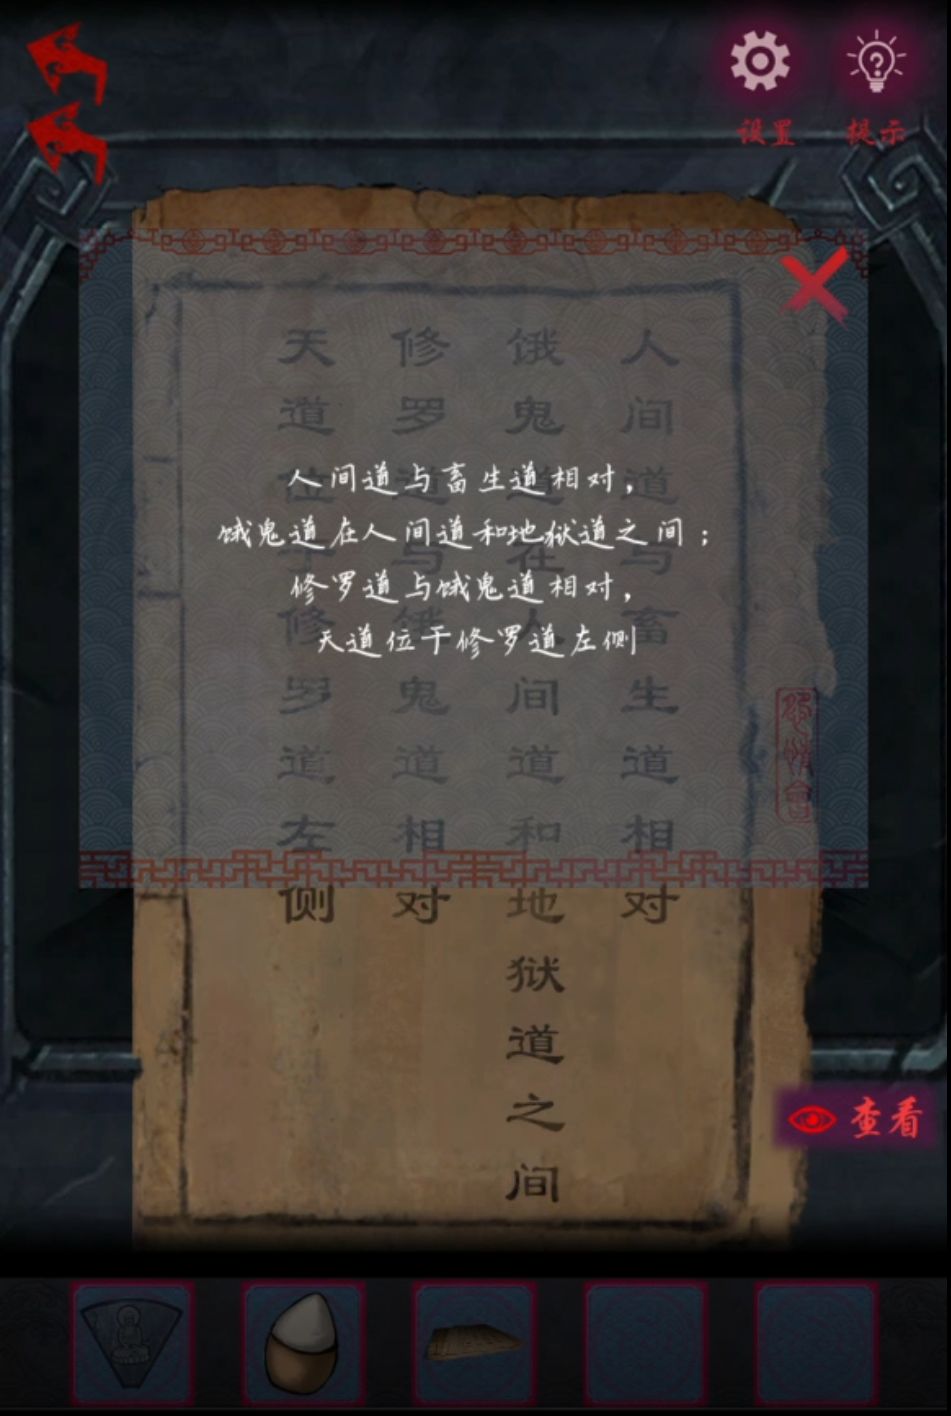 设置
提示
人间道与畜生道相对，
饿鬼道在人间道和地狱道之间；
修罗道与饿鬼道相对，
天道位于修罗道左侧
人间道与畜生道相对
饿鬼道在人间道和地狱道之间
修罗道与饿鬼道相对
天道位于修罗道左侧
查看